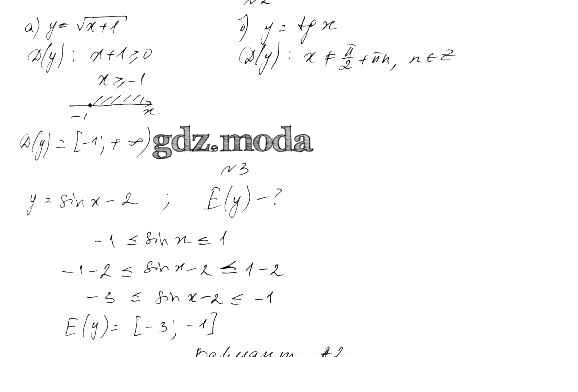 №2
а) y = √(x+1)
D(y): x+1 ≥ 0
x ≥ -1
-1 x
D(y) = [-1; +∞)
б) y = tg x
D(y): x ≠ π/2 + πn, n ∈ Z
gdz.moda
№3
y = sin x - 2 ; E(y) - ?
-1 ≤ sin x ≤ 1
-1-2 ≤ sin x - 2 ≤ 1-2
-3 ≤ sin x - 2 ≤ -1
E(y) = [-3; -1]